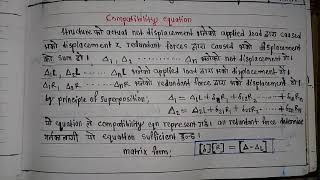 Compatibility equation
Structure को actual net displacement भनेको applied load द्वारा caused
भको displacement र redundant forces द्वारा caused भको displacement
को sum हो।
Δ₁, Δ₂ ------ Δn भनेको net displacement हो।
Δ₁L, Δ₂L ------ ΔnL भनेको applied load द्वारा भको displacement हो।
Δ₁R, Δ₂R ------ ΔnR भनेको redundant forces द्वारा भको displacement हो।
by principle of superposition, Δ₁ = Δ₁L + δ₁₁R₁ + δ₁₂R₂ ------ + δ₁nRn
Δ₂ = Δ₂L + δ₂₁R₁ + δ₂₂R₂ ------ + δ₂nRn
यो equation ले compatibility eqn represent गर्छ। all redundant force determine
गर्नको लागी यो equation sufficient हुन्छ।
matrix form, [δ][R] = [Δ - ΔL]